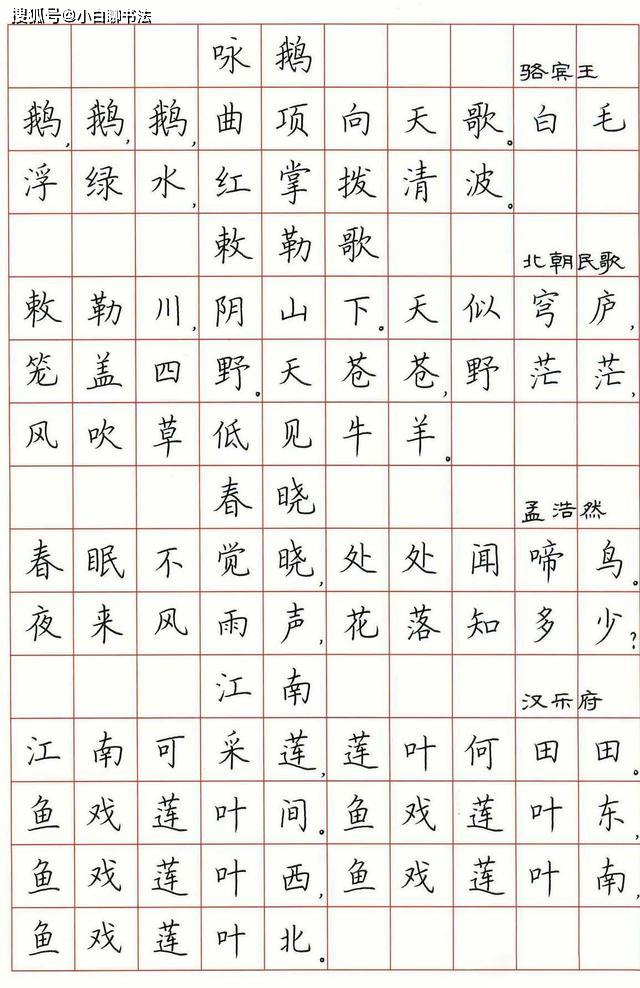 搜狐号@小白聊书法
咏鹅
骆宾王
鹅,鹅,鹅,曲项向天歌。白毛
浮绿水,红掌拨清波。
敕勒歌
北朝民歌
敕勒川,阴山下。天似穹庐,
笼盖四野。天苍苍,野茫茫,
风吹草低见牛羊。
春晓
孟浩然
春眠不觉晓,处处闻啼鸟。
夜来风雨声,花落知多少?
江南
汉乐府
江南可采莲,莲叶何田田。
鱼戏莲叶间。鱼戏莲叶东,
鱼戏莲叶西,鱼戏莲叶南,
鱼戏莲叶北。